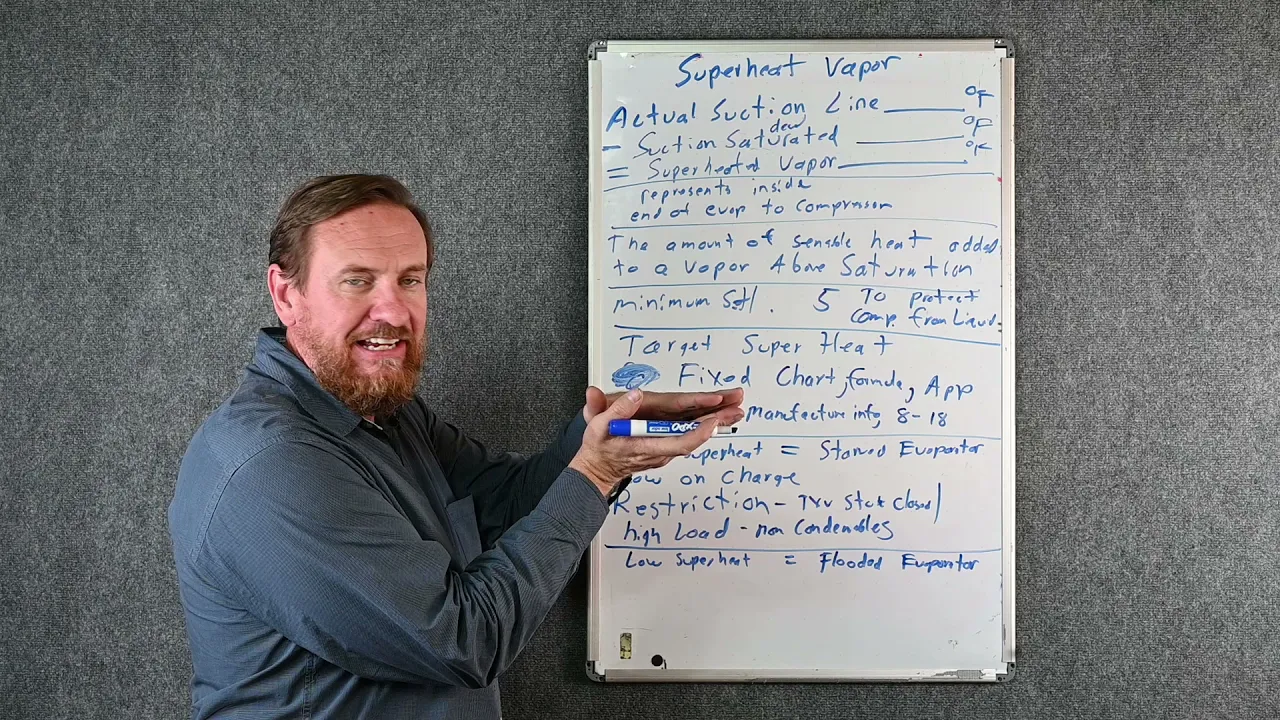 Superheat Vapor
Actual Suction Line ______ °F
dew
- Suction Saturated ______ °F
= Superheated Vapor ______ °F
represents inside
end of evap to compressor
The amount of sensable heat added
to a vapor Above Saturation
minimum 5 To protect
Comp. from Liquid
Target Super Heat
Fixed Chart, formula, App
Manufacture info, 8-18
superheat = Starved Evaporator
Low on Charge
Restriction - TXV Stuck Closed/
high Load - non Condensables
Low Superheat = Flooded Evaporator
EXPO